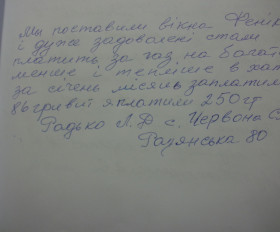 Мы поставили вікна Фенік
і дуже задоволені стали
платить за газ на багат
менше і тепліше в хат
за січень місяць заплатил
86 гривні я платили 250 гр
Радько Л. Д с. Червона С
Радянська 80